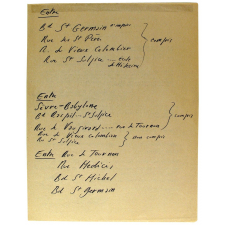 Entre
Bd St Germain compris
Rue des St Pères
R. du Vieux Colombier
Rue St Sulpice
compris
Entre
Sèvres-Babylone
Bd Raspail - St Sulpice
compris
Rue de Vaugirard - rue de Tournon
Rue du Vieux Colombier
Rue St Sulpice
non compris
Entre Rue de Tournon
Rue Médicis
Bd St Michel
Bd St Germain